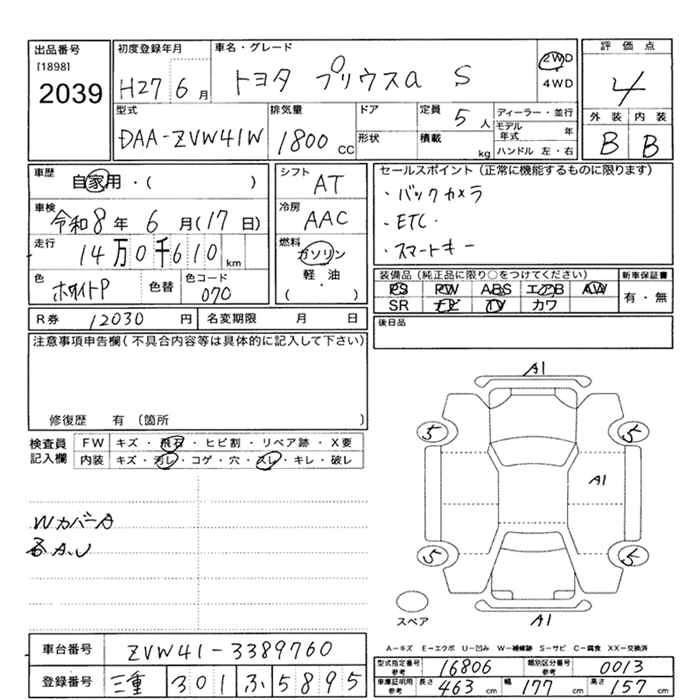 出品番号
[1898]
2039
初度登録年月
H27 6月
車名・グレード
トヨタ プリウスα S
2WD
4WD
評価点
4
外装 内装
B B
型式
DAA-ZVW41W
排気量
1800 CC
ドア
形状
定員 5人
積載 kg
ディーラー・並行
モデル年式 年
ハンドル 左・右
車歴
自家用・( )
車検
令和8年 6月(17日)
走行
14万0千610km
色
ホワイトP
色替
色コード
070
シフト
AT
冷房
AAC
燃料
ガソリン
軽・油
( )
セールスポイント(正常に機能するものに限ります)
・バックカメラ
・ETC・
・スマートキー
装備品(純正品に限り○をつけてください)
PS PW ABS エアB AW
SR ナビ TV カワ
新車保証書
有・無
後日品
R券 12030円
名変期限 月 日
注意事項申告欄(不具合内容等は具体的に記入して下さい)
修復歴 有(箇所
検査員
記入欄
FW キズ・飛石・ヒビ割・リペア跡・X要
内装 キズ・汚レ・コゲ・穴・スレ・キレ・破レ
WカバーA
A.U
A1
5 5
A1
5 5
スペア
A1
A-キズ E-エクボ U-凹み W-補修跡 S-サビ C-腐食 XX-交換済
車台番号
ZVW41-3389760
登録番号
三重 301 ふ 5895
型式指定番号
参考
16806
類別区分番号
参考
0013
車庫証明用
参考
長さ 463 cm 幅 177 cm 高さ 157 cm